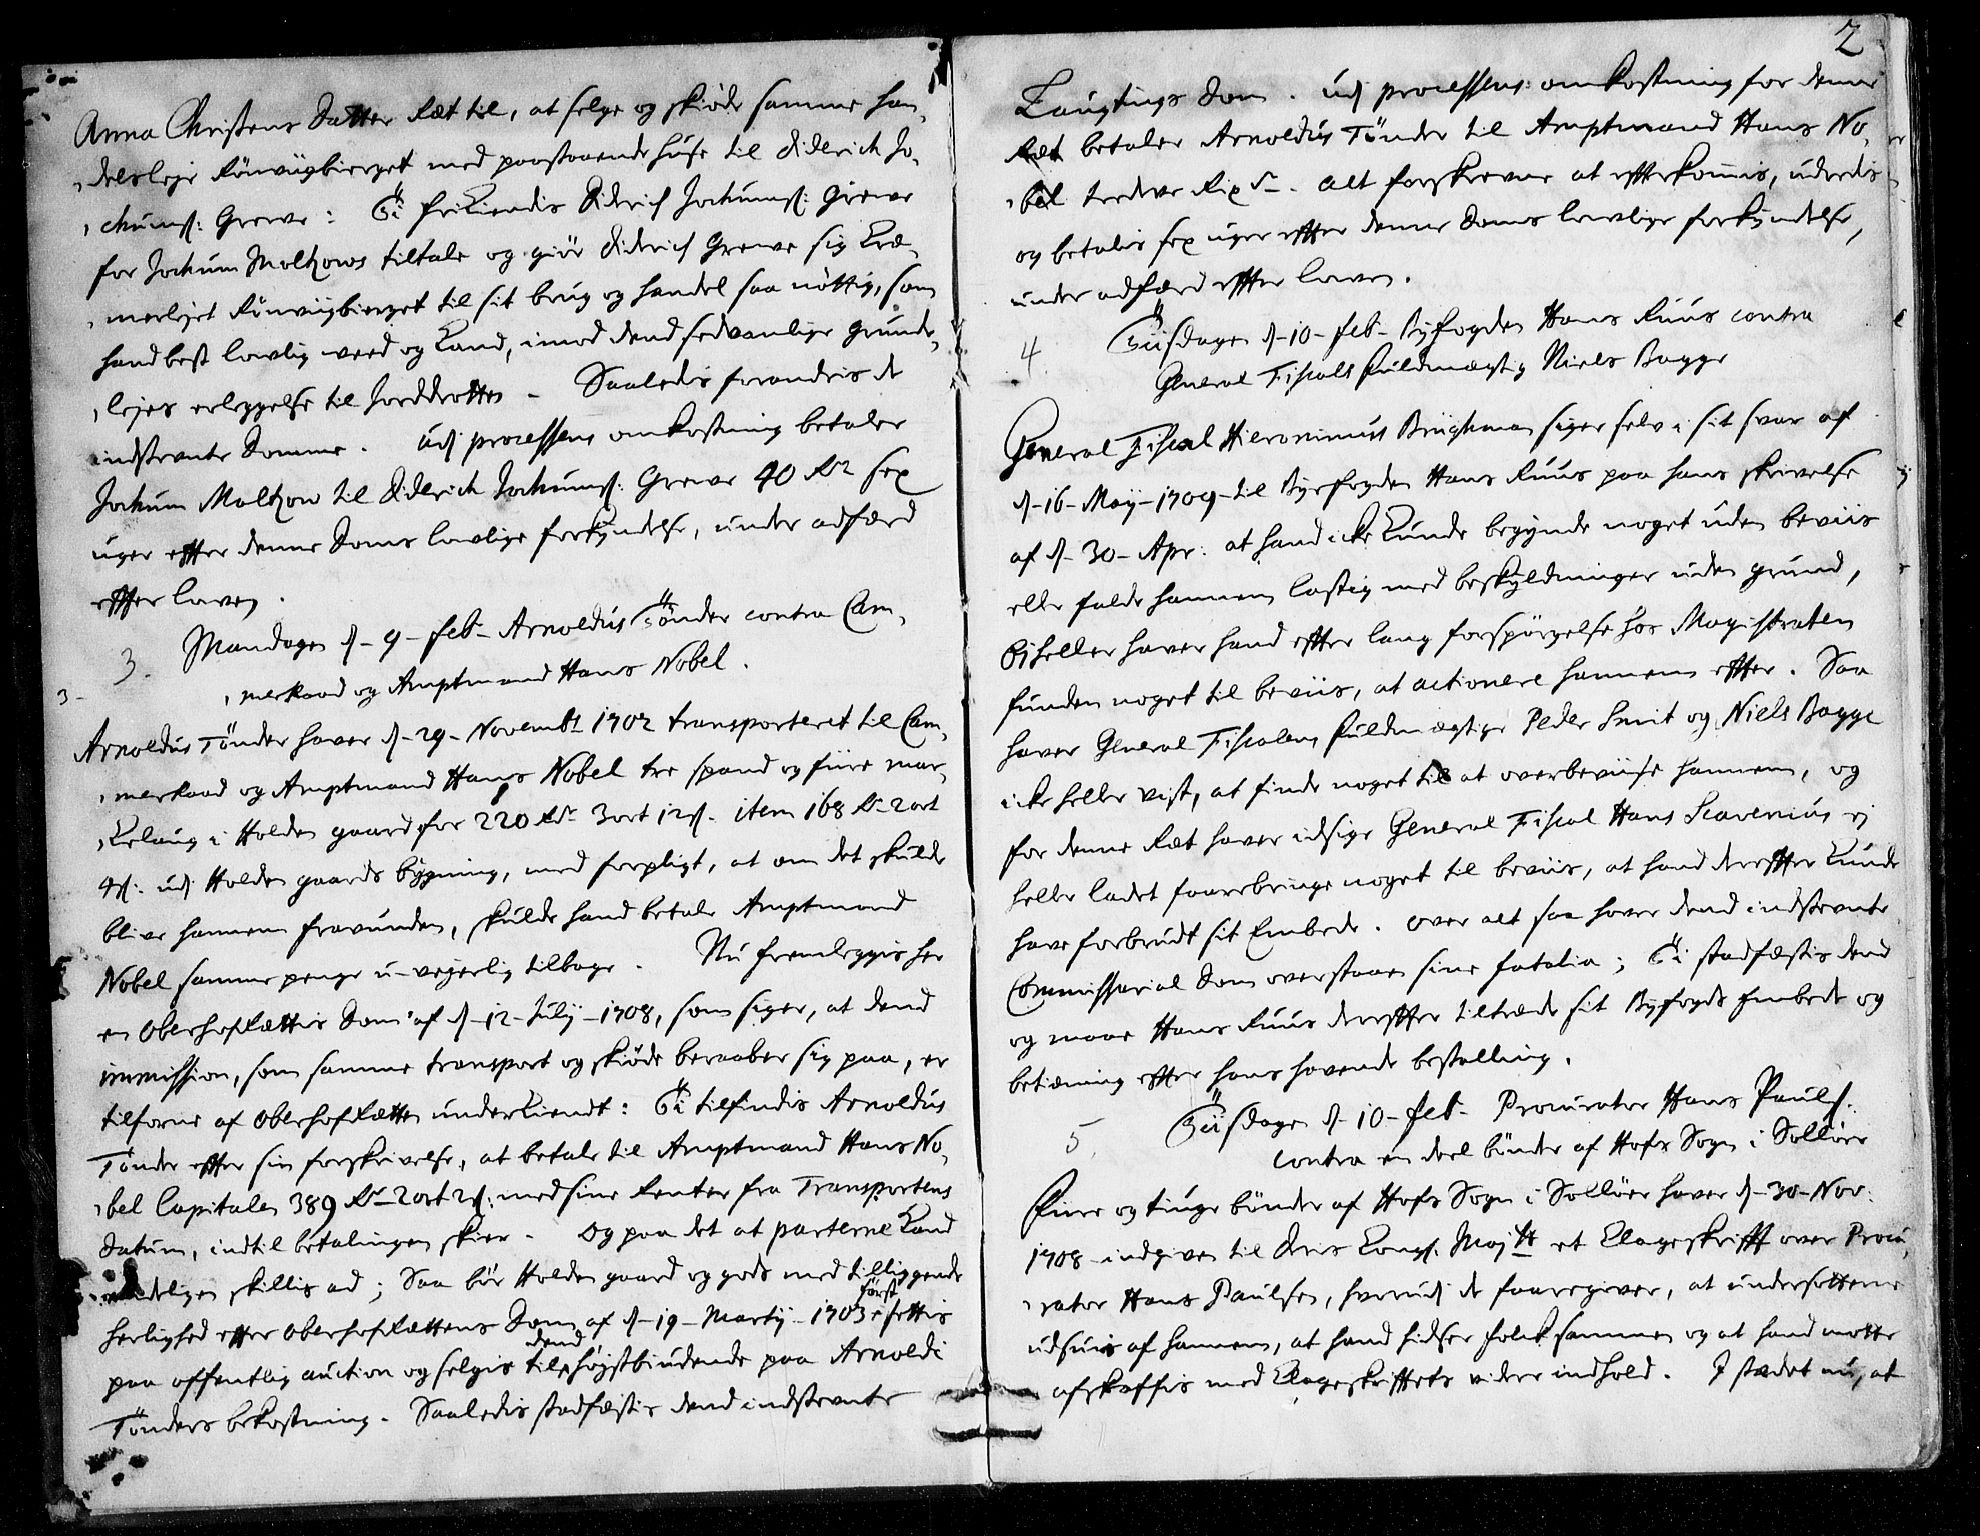 Anna Christens Datter Ræt til, at selge og skiøde samme han,
,delsleje Rönviigbierget med paastaaende huse til Diderich Jo,
,chumß: Grewe: Ti frikiendis Diderich Jochumß: Grewe
for Jochum Moltzows tiltale og giör Diderich Grewe sig Kræ,
,merlejet Rönviigbierget til sit brug og handel saa nöttig, som
hand best lovlig veed og Kand, imod dend sedvanlige grunde,
,lejes erleggelse til Jorddrotten - Saaledis forandris de
indstevnte Domme. Udj processens omkostning betaler
Jochum Moltzow til Diderich Jochumß: Grewe 40 Rdr sex
uger effter denne Doms lovlige forkyndelse, under adfærd
effter loven.
3. Mandagen d - 9 - Feb - Arnoldus Tönder contra Cam,
3 - ,merraad og Amptmand Hans Nobel.
Arnoldus Tönder haver d - 29 - Novembr 1702 transporteret til Cam,
,merraad og Amptmand Hans Nobel tre spand og fiire mar,
,kelaug i Holden gaard for 220 Rdr 3 ort 12 ß. item 168 Rdr 2 ort
4 ß: udj Holden gaards bygning, med forpligt, at om det skulde
blive hannem fravunden, skulde hand betale Amptmand
Nobel samme penge u-vejerlig tilbage. Nu fremleggis her
en Oberhofrættis Dom af d - 12 - Julij - 1708, som siger, at dend
immission, som samme transport og skiöde beraaber sig paa, er
tilforne af Oberhofrætten underkiendt: Ti tilfindis Arnoldus
Tönder effter sin forskrivelse, at betale til Amptmand Hans No,
,bel Capitalen 389 Rdr 2 ort 2 ß: med sine Renter fra Transportens
Datum, indtil betalingen skier - Og paa det at parterne Kand
endeligen skillis ad; Saa bör Holden gaard og gods med tilliggende
herlighed effter Oberhofrættens Dom af d - 19 - Martij - 1703 först settis
paa offentlig auction og selgis til dend höjstbiudende paa Arnoldi
Tönders bekostning. Saaledis stadfæstis dend indstevnte
2
Laugtings Dom. Udj processens omkostning for denne
Ræt betaler Arnoldus Tönder til Amptmand Hans No,
,bel tredeve Rixdr. Alt forskrevne at effterkommis, uderedis
og betalis sex uger effter denne Doms lovlige forkyndelse,
under adfærd effter loven.
4. Tiisdagen d - 10 - Feb - Byfogden Hans Ruus contra
General Fiscals fuldmægtig Niels Bagge
General Fiscal Hieronimus Brüghman siger selv i sit svar af
d - 16 - Maij - 1709 - til Byefogden Hans Ruus paa hans skrivelse
af d - 30 - Apr: at hand icke Kunde begynde noget uden beviis
eller falde hannem lastig med beskyldninger uden grund,
Ej heller haver hand effter lang forspörgelse hos Magistraten
funden noget til beviis, at actionere hannem effter. Saa
haver General Fiscalens fuldmægtige Peder Smit og Niels Bagge
icke heller vist, at finde noget til at overbeviise hannem, og
for denne Ræt haver idsige General Fiscal Hans Scavenius ej
heller ladet faarebringe noget til beviis, at hand dereffter Kunde
have forbrudt sit Embede. Over alt saa haver dend indstevnte
Commissarial Dom overstaaen sine fatalia; Ti stadfæstis dend
og maae Hans Ruus dereffter tiltræde sit Byfogds Embede og
betiæning effter hans havende bestalling.
5. Tiisdagen d - 10 - Feb - Procurator Hans Paulß.
contra en deel bönder af Hofs Sogn i Sollöer
Fiire og tiuge bönder af Hofs Sogn i Sollöer haver d - 30 - Nov:
1708 - indgiven til deris Kongl. Majtt et Klageskrifft over Procu,
,rator Hans Paulsen, hvorudj de faaregiver, at undersotterne
udsuis af hannem, at hand hidser folck sammen og at hand motte
afskaffis med Klageskrifftets videre indhold. I stædet nu, at